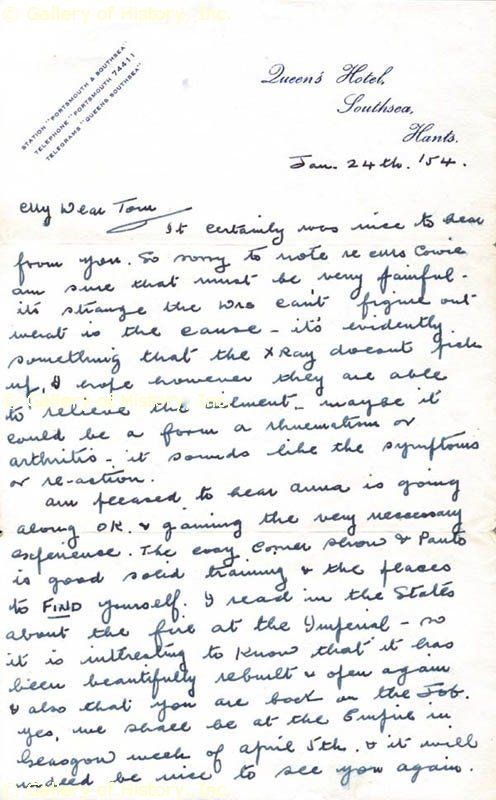 © Gallery of History, Inc.
STATION "PORTSMOUTH & SOUTHSEA"
TELEPHONE "PORTSMOUTH 74411
TELEGRAMS "QUEENS SOUTHSEA"
Queen's Hotel,
Southsea,
Hants.
Jan. 24th. '54.
My Dear Tom
It certainly was nice to hear
from you. So sorry to note re Mrs Cowie
am sure that must be very painful -
its strange the Drs can't figure out
what is the cause - it's evidently
something that the X Ray doesnt pick
up, I hope however they are able
to relieve the ailment - maybe it
could be a form a rhuematism or
arthritis - it sounds like the symptoms
or re-action.
am pleased to hear Anna is going
along OK. & gaining the very neccessary
experience. The Cosy Corner Show & Panto
is good solid training & the places
to FIND yourself. I read in the States
about the fire at the Imperial - so
it is intresting to know that it has
been beautifully rebuilt & open again
& also that you are back on the Job.
Yes, we shall be at the Empire in
Glasgow week of April 5th. & it will
indeed be nice to see you again.
© Gallery of History, Inc.